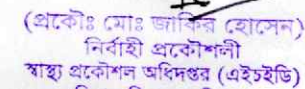 (প্রকৌঃ মোঃ জাকির হোসেন)
নির্বাহী প্রকৌশলী
স্বাস্থ্য প্রকৌশল অধিদপ্তর (এইচইডি)